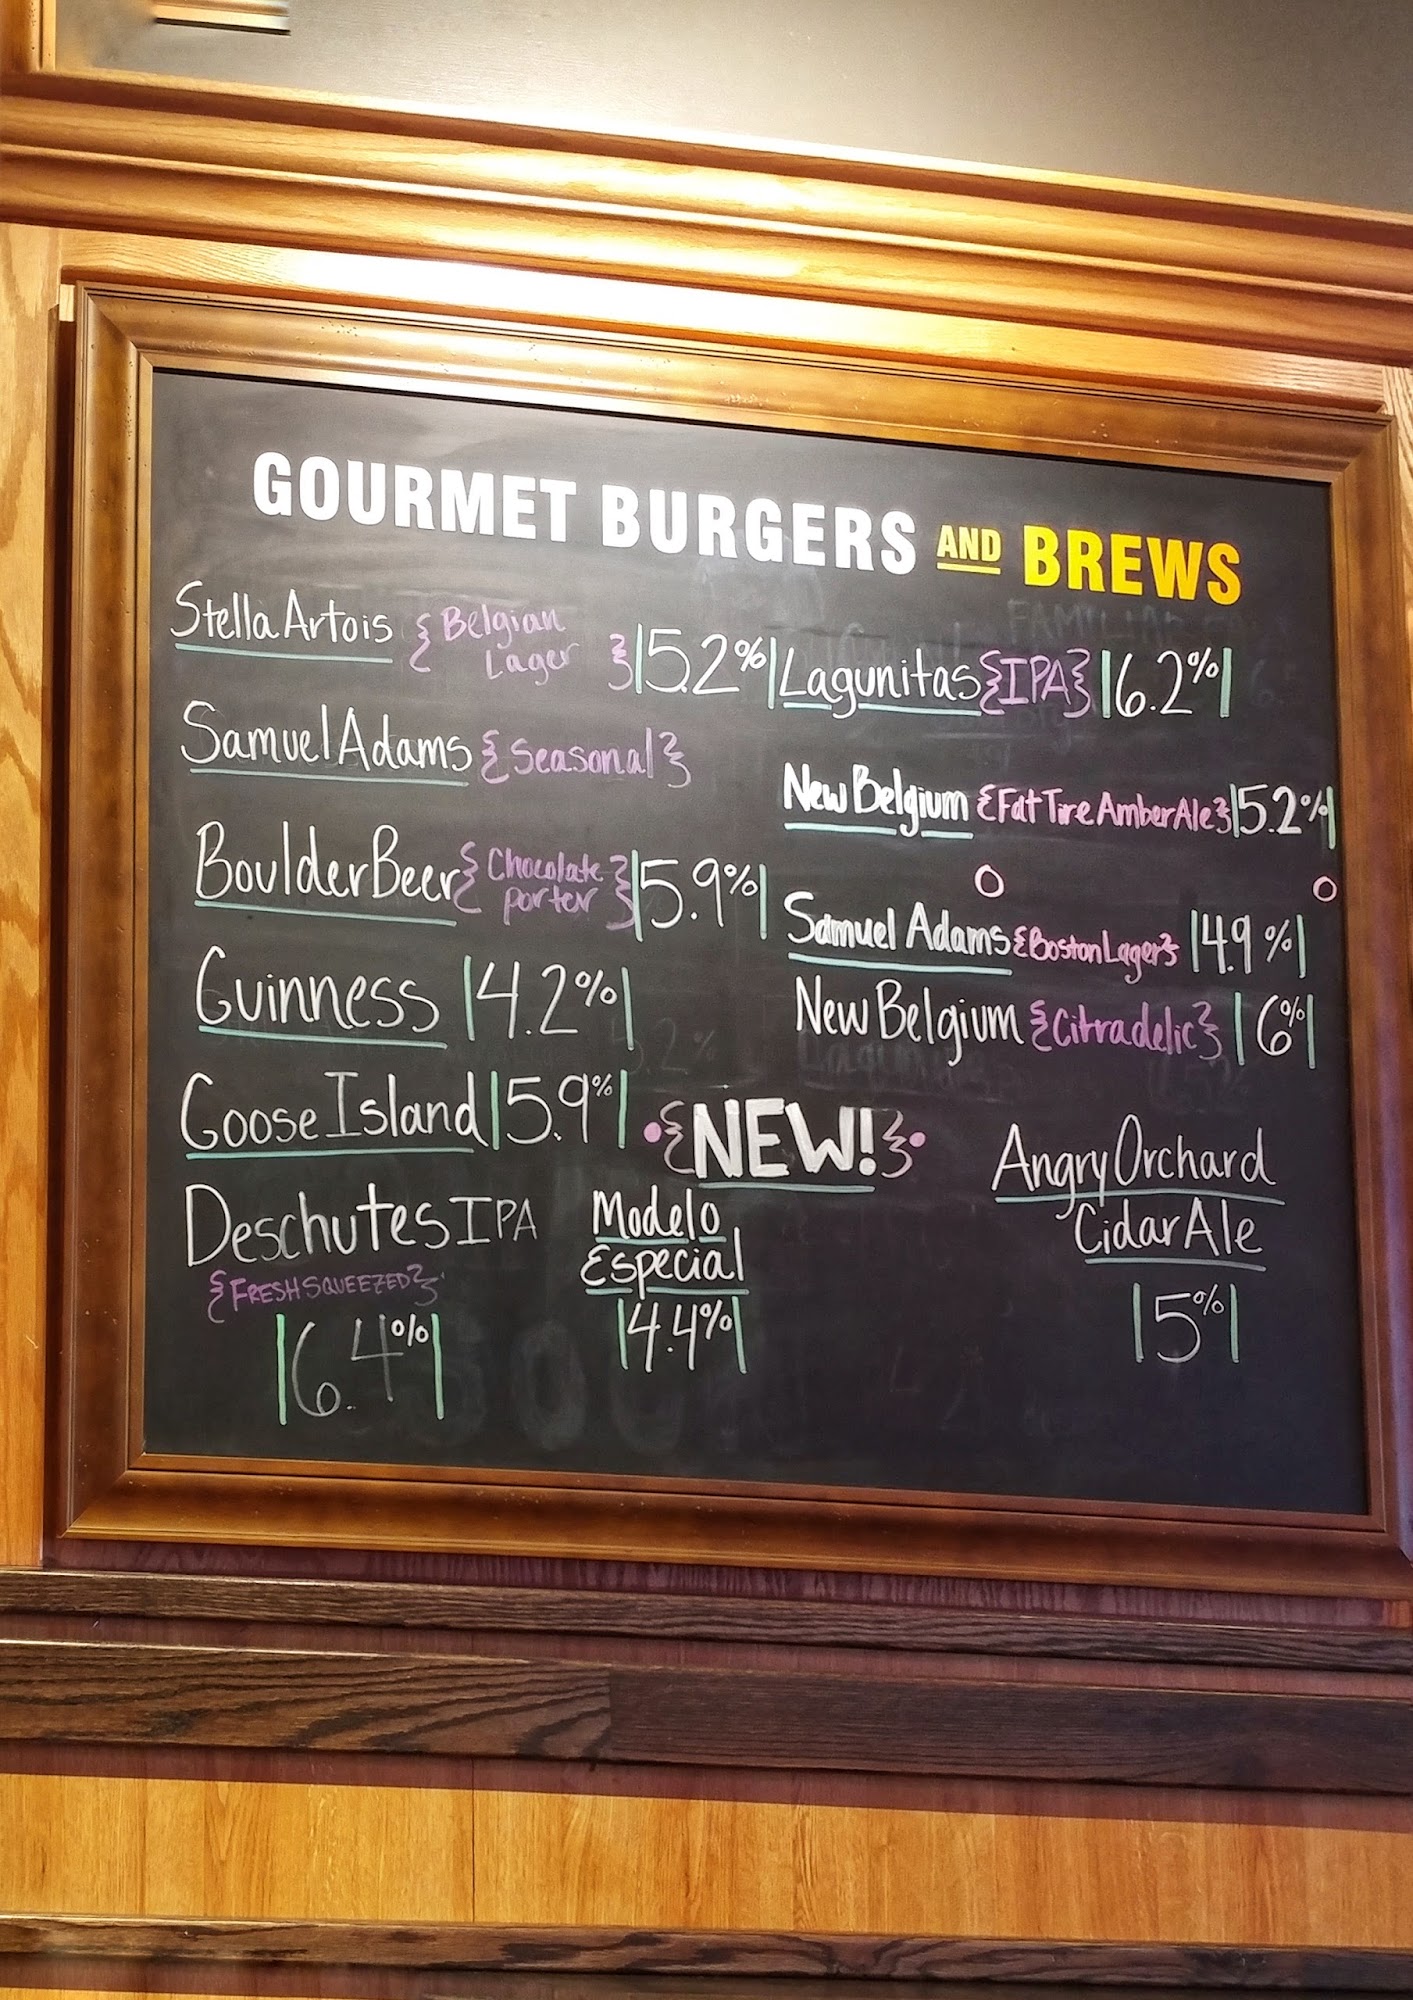 GOURMET BURGERS AND BREWS
Stella Artois {Belgian Lager} |5.2%|
Samuel Adams {Seasonal}
Boulder Beer {Chocolate porter} |5.9%|
Guinness |4.2%|
Goose Island |5.9%|
Deschutes IPA
{FRESH SQUEEZED}
|6.4%|
Lagunitas {IPA} |6.2%|
New Belgium {Fat Tire Amber Ale} |5.2%|
Samuel Adams {Boston Lager} |4.9%|
New Belgium {Citradelic} |6%|
{NEW!}
Modelo
Especial
|4.4%|
Angry Orchard
Cidar Ale
|5%|